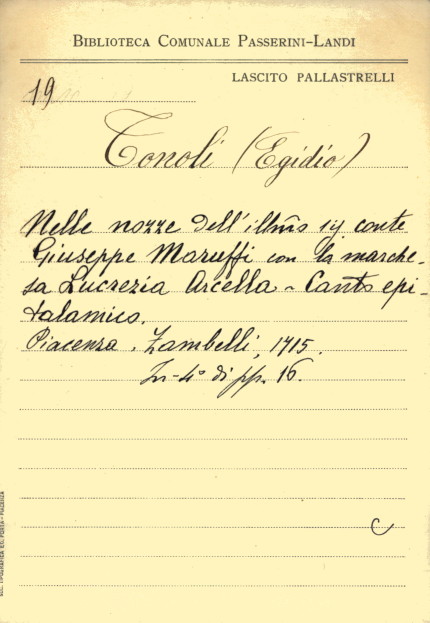 BIBLIOTECA COMUNALE PASSERINI-LANDI
LASCITO PALLASTRELLI
19
Tonoli (Egidio)
Nelle nozze dell'illm̃o sig conte
Giuseppe Maruffi con la marche-
sa Lucrezia Arcella - Canto epi-
talamico.
Piacenza, Zambelli, 1715.
In-4° di pp. 16.
C
SOC. TIPOGRAFICA ED. PORTA - PIACENZA